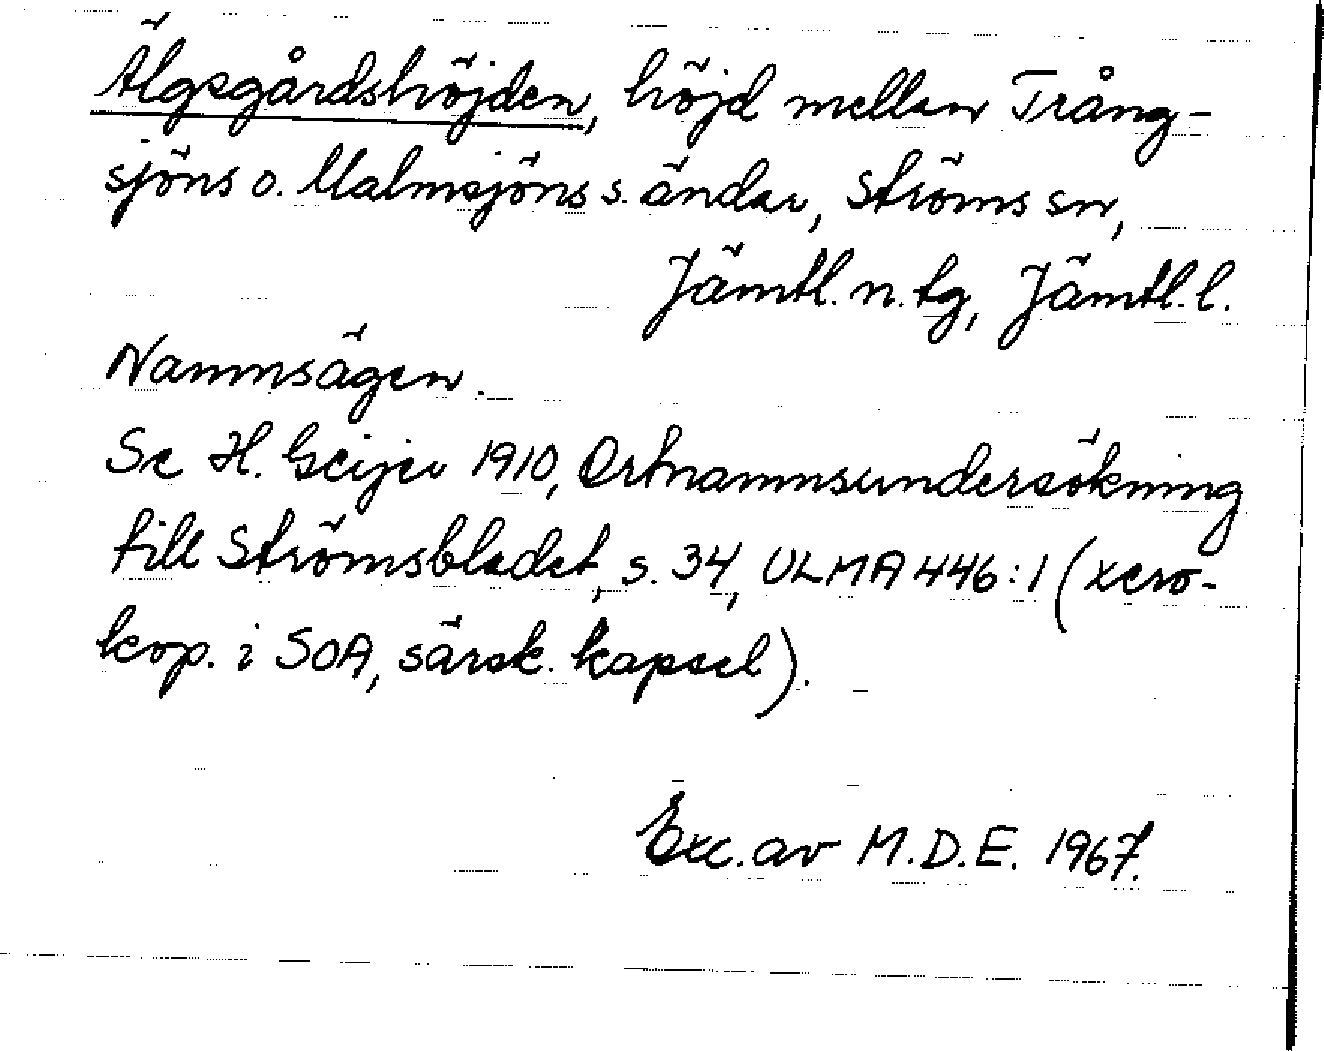 Älgsgårdshöjden, höjd mellan Trång-
sjöns o. Malmsjöns s. ändar, Ströms sn,
Jämtl. n. tg, Jämtl. l.
Namnsägen.
Se H. Geijer 1910, Ortnamnsundersökning
till Strömsbladet, s. 34, ULMA 446:1 (xero-
kop. i SOA, särsk. kapsel).
Exc. av M.D.E. 1967.